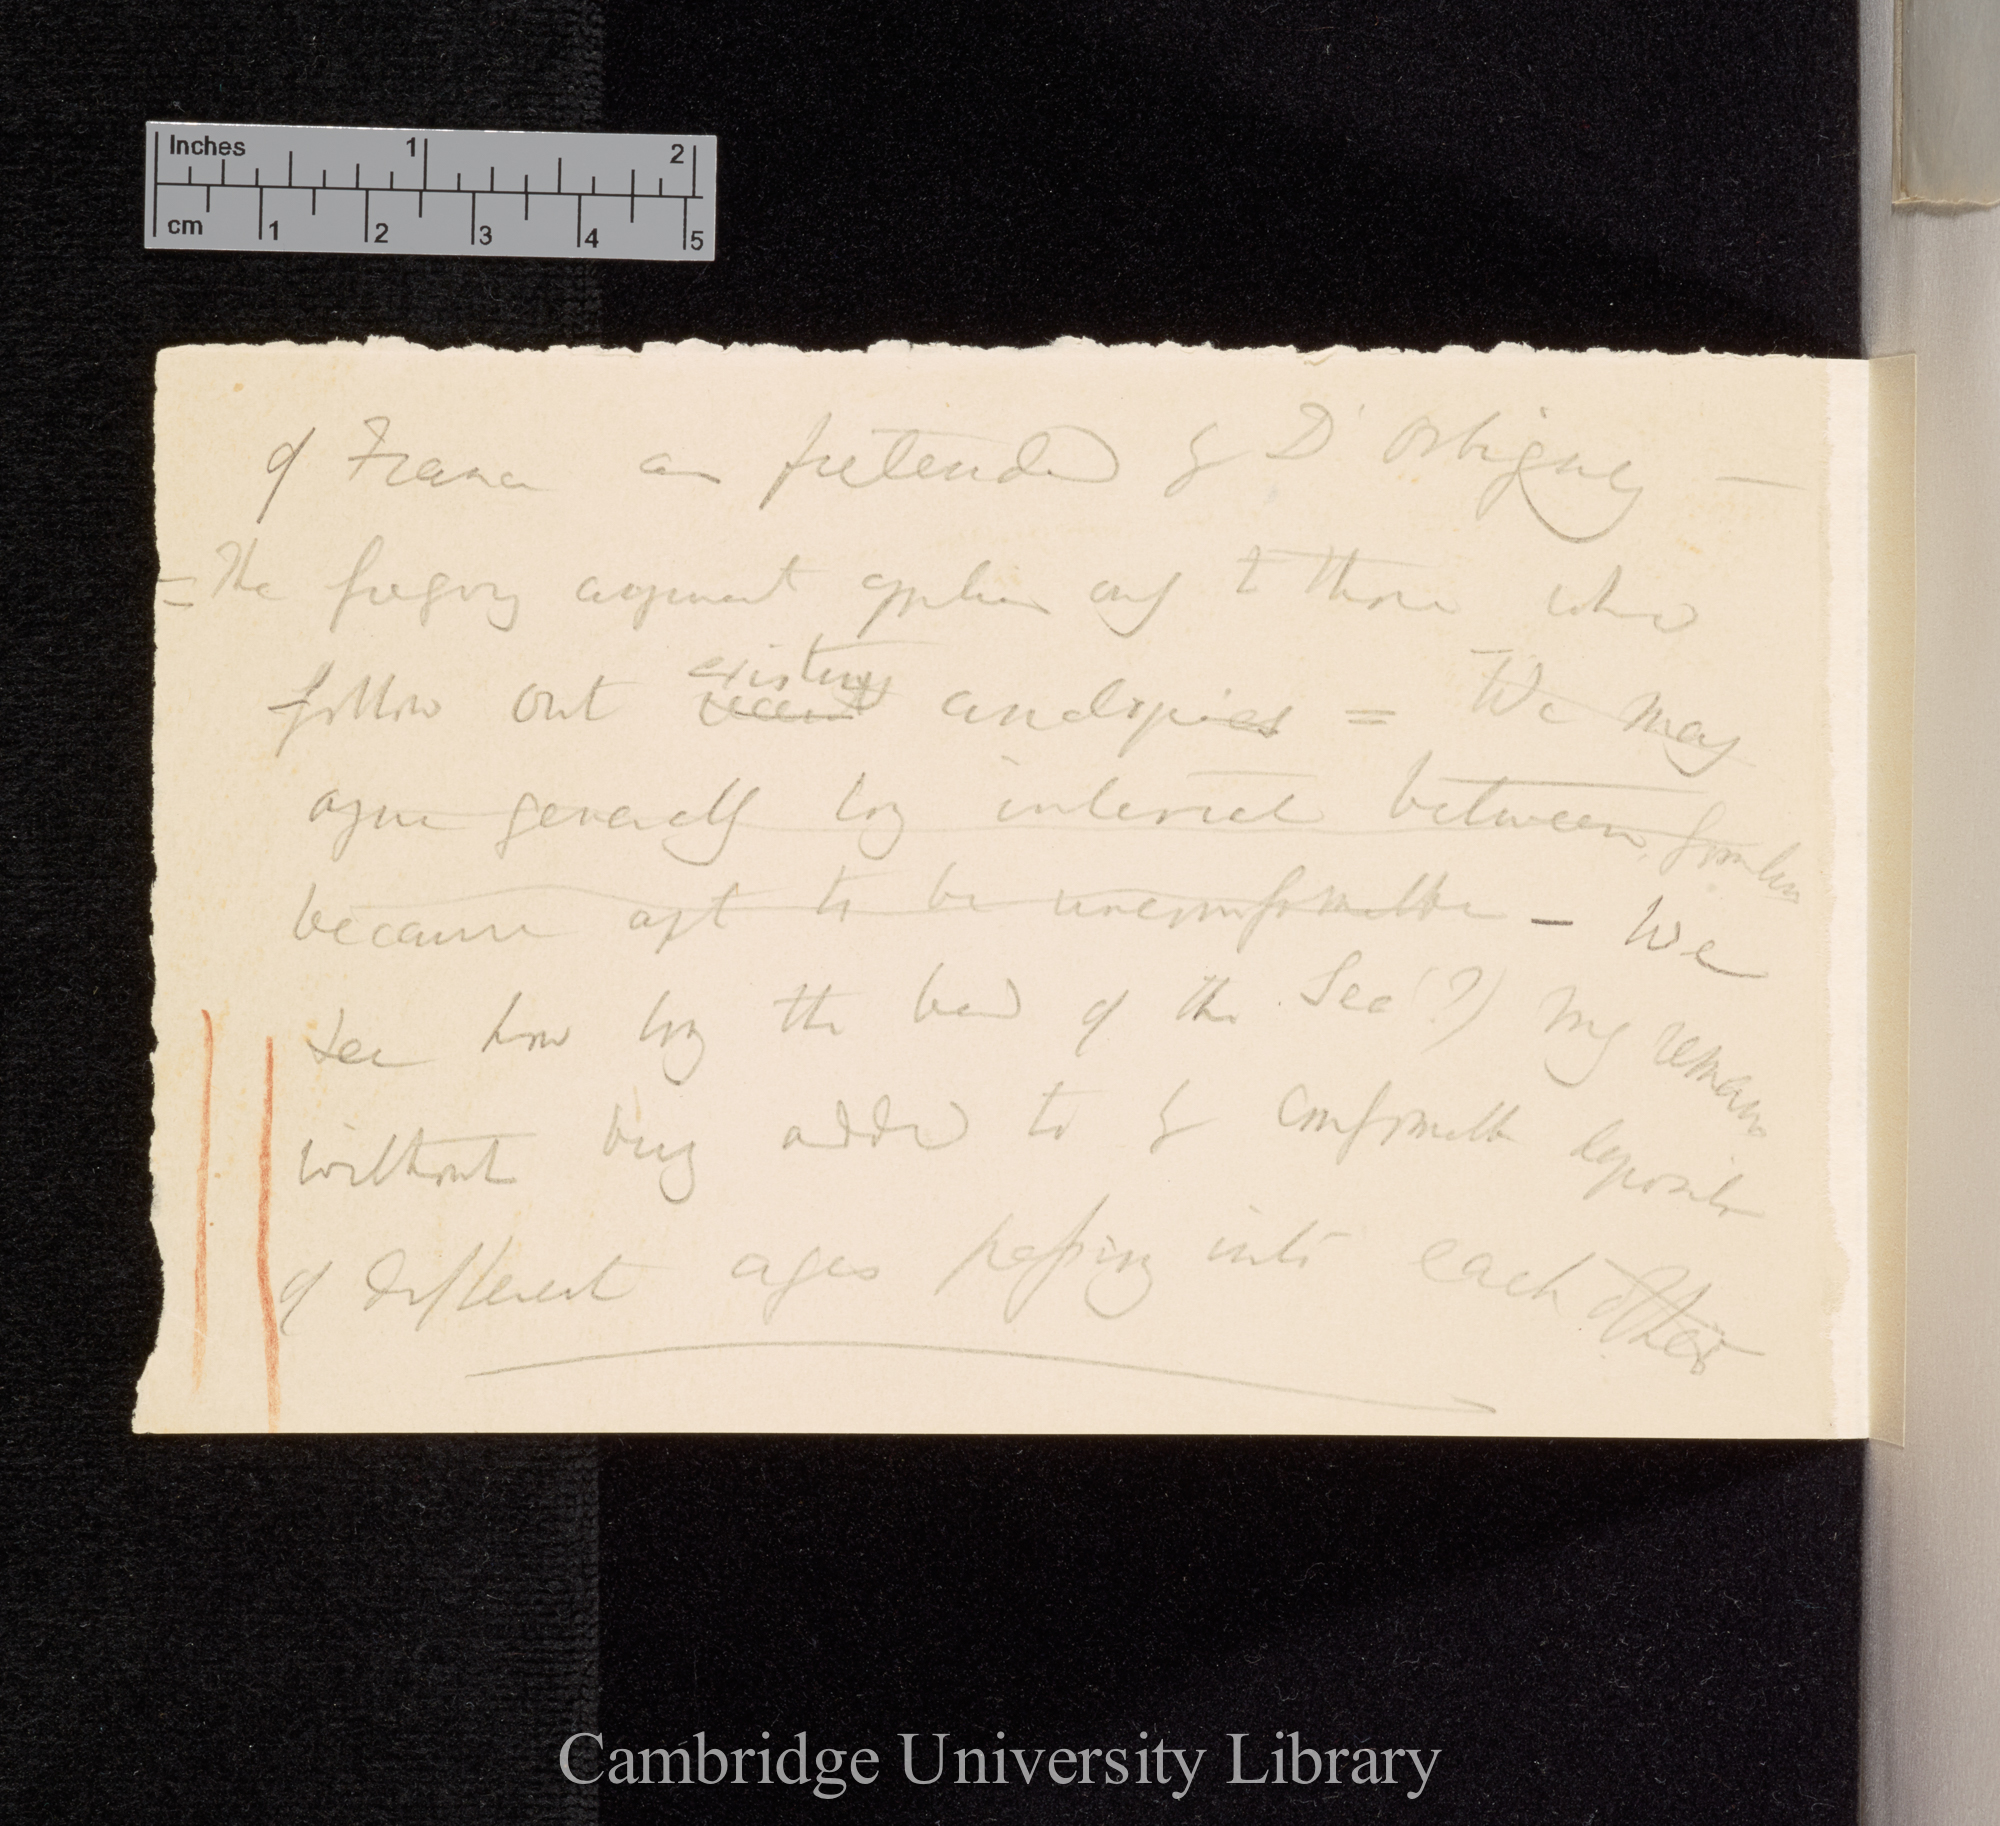 Inches 1 2
cm 1 2 3 4 5
of France as pretended by D'Orbigny —
= The foregoing argument applies only to those who
follow out recent existing analogies = We may
argue generally long interval between formations
because apt to be unconformable — We
see how long the bed of the Sea (?) may remain
without being added to by conformable deposits
of different ages passing into each other
Cambridge University Library